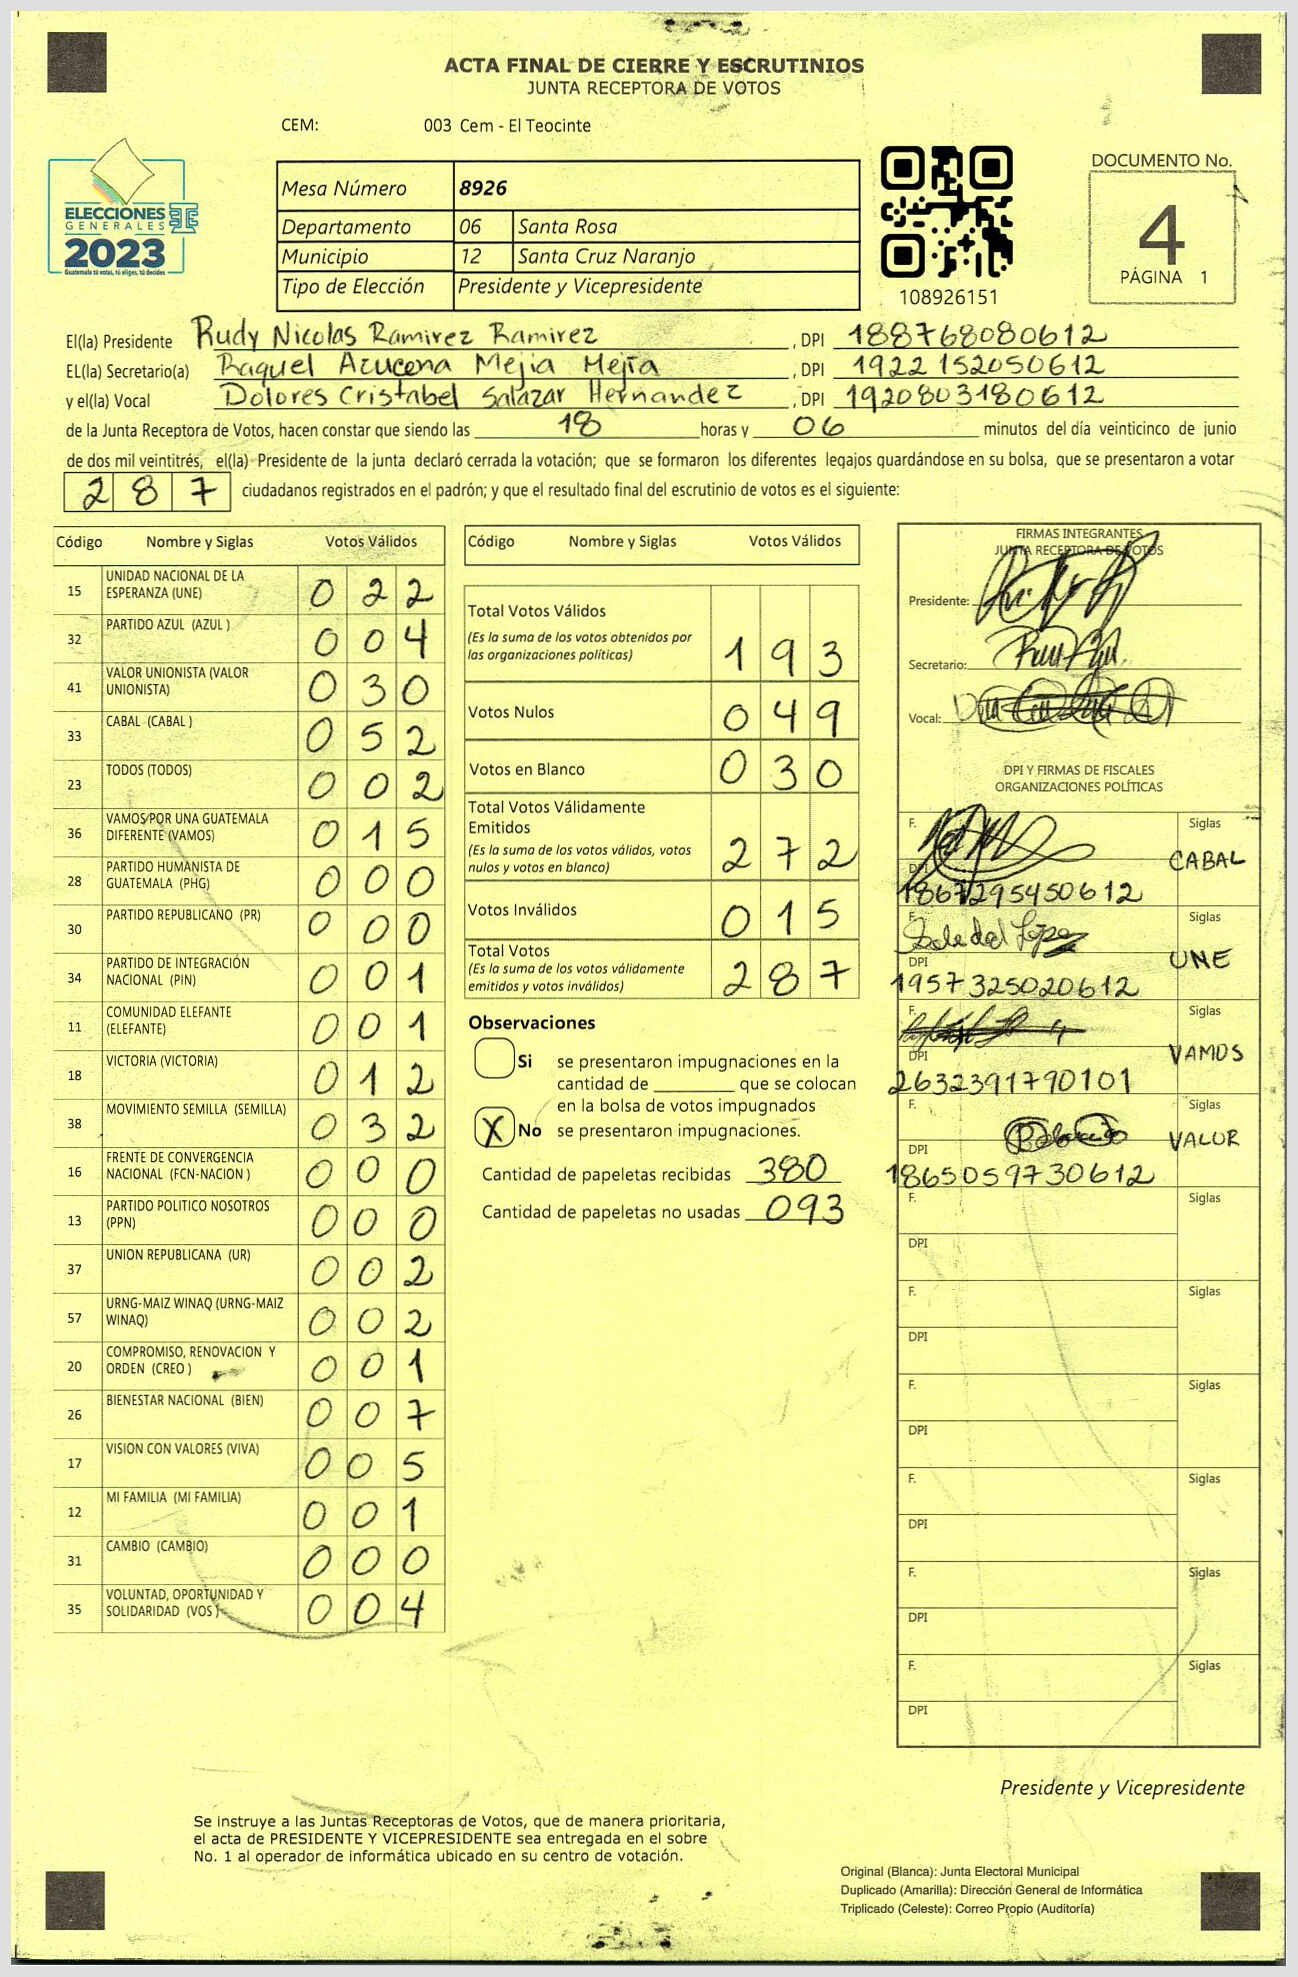 ACTA FINAL DE CIERRE Y ESCRUTINIOS
JUNTA RECEPTORA DE VOTOS
CEM: 003 Cem - El Teocinte
ELECCIONES
GENERALES
2023
Guatemala tú votas, tú eliges, tú decides
Mesa Número 8926
Departamento 06 Santa Rosa
Municipio 12 Santa Cruz Naranjo
Tipo de Elección Presidente y Vicepresidente
108926151
DOCUMENTO No.
4
PÁGINA 1
El(la) Presidente Rudy Nicolas Ramirez Ramirez, DPI 188768080612
EL(la) Secretario(a) Raquel Azucena Mejia Mejía, DPI 1922152050612
y el(la) Vocal Dolores Cristabel Salazar Hernandez, DPI 1920803180612
de la Junta Receptora de Votos, hacen constar que siendo las 18 horas y 06 minutos del día veinticinco de junio
de dos mil veintitrés, el(la) Presidente de la junta declaró cerrada la votación; que se formaron los diferentes legajos guardándose en su bolsa, que se presentaron a votar
287 ciudadanos registrados en el padrón; y que el resultado final del escrutinio de votos es el siguiente:
Código Nombre y Siglas Votos Válidos
15 UNIDAD NACIONAL DE LA ESPERANZA (UNE) 022
32 PARTIDO AZUL (AZUL ) 004
41 VALOR UNIONISTA (VALOR UNIONISTA) 030
33 CABAL (CABAL ) 052
23 TODOS (TODOS) 002
36 VAMOS POR UNA GUATEMALA DIFERENTE (VAMOS) 015
28 PARTIDO HUMANISTA DE GUATEMALA (PHG) 000
30 PARTIDO REPUBLICANO (PR) 000
34 PARTIDO DE INTEGRACIÓN NACIONAL (PIN) 001
11 COMUNIDAD ELEFANTE (ELEFANTE) 001
18 VICTORIA (VICTORIA) 012
38 MOVIMIENTO SEMILLA (SEMILLA) 032
16 FRENTE DE CONVERGENCIA NACIONAL (FCN-NACION ) 000
13 PARTIDO POLITICO NOSOTROS (PPN) 000
37 UNION REPUBLICANA (UR) 002
57 URNG-MAIZ WINAQ (URNG-MAIZ WINAQ) 002
20 COMPROMISO, RENOVACION Y ORDEN (CREO ) 001
26 BIENESTAR NACIONAL (BIEN) 007
17 VISION CON VALORES (VIVA) 005
12 MI FAMILIA (MI FAMILIA) 001
31 CAMBIO (CAMBIO) 000
35 VOLUNTAD, OPORTUNIDAD Y SOLIDARIDAD (VOS ) 004
Código Nombre y Siglas Votos Válidos
Total Votos Válidos
(Es la suma de los votos obtenidos por
las organizaciones políticas) 193
Votos Nulos 049
Votos en Blanco 030
Total Votos Válidamente
Emitidos
(Es la suma de los votos válidos, votos
nulos y votos en blanco) 272
Votos Inválidos 015
Total Votos
(Es la suma de los votos válidamente
emitidos y votos inválidos) 287
Observaciones
Si se presentaron impugnaciones en la
cantidad de ________ que se colocan
en la bolsa de votos impugnados
X No se presentaron impugnaciones.
Cantidad de papeletas recibidas 380
Cantidad de papeletas no usadas 093
FIRMAS INTEGRANTES
JUNTA RECEPTORA DE VOTOS
Presidente:
Secretario:
Vocal:
DPI Y FIRMAS DE FISCALES
ORGANIZACIONES POLÍTICAS
F. Siglas CABAL
DPI 1867295450612
F. Soledad López Siglas UNE
DPI 1957325020612
F. Siglas VAMOS
DPI 2632391790101
F. Siglas VALOR
DPI 1865059730612
F. Siglas
DPI
F. Siglas
DPI
F. Siglas
DPI
F. Siglas
DPI
F. Siglas
DPI
F. Siglas
DPI
Presidente y Vicepresidente
Se instruye a las Juntas Receptoras de Votos, que de manera prioritaria,
el acta de PRESIDENTE Y VICEPRESIDENTE sea entregada en el sobre
No. 1 al operador de informática ubicado en su centro de votación.
Original (Blanca): Junta Electoral Municipal
Duplicado (Amarilla): Dirección General de Informática
Triplicado (Celeste): Correo Propio (Auditoría)